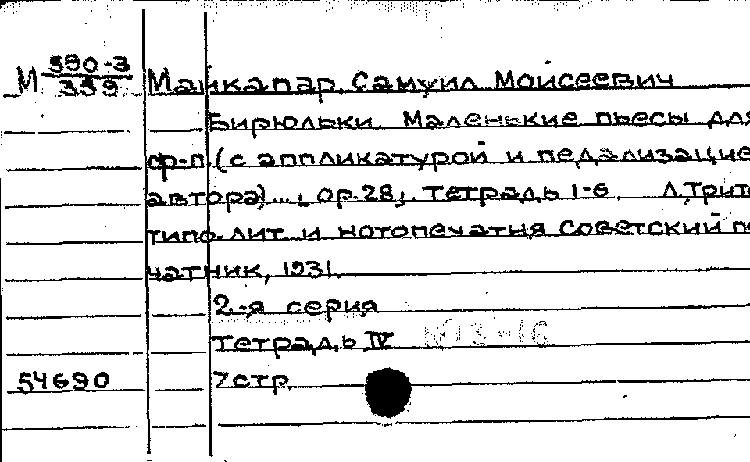 М 590-3/359 Майкапар, Самуил Моисеевич
Бирюльки. Маленькие пьесы для
ф-п. (с аппликатурой и педализацие
автора)..., ор.28,. Тетрадь 1-6. Л, Трит
типо-лит. и нотопечатня Советский пе
чатник, 1931.
2-я серия
Тетрадь IV №13-16
54690 7 стр.